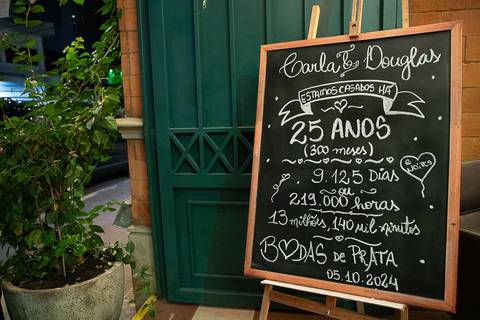 Carla & Douglas
ESTAMOS CASADOS HÁ
25 ANOS
(300 meses)
9.125 Dias
ou
219.000 horas
13 milhões, 140 mil minutos
BODAS de PRATA
05.10.2024